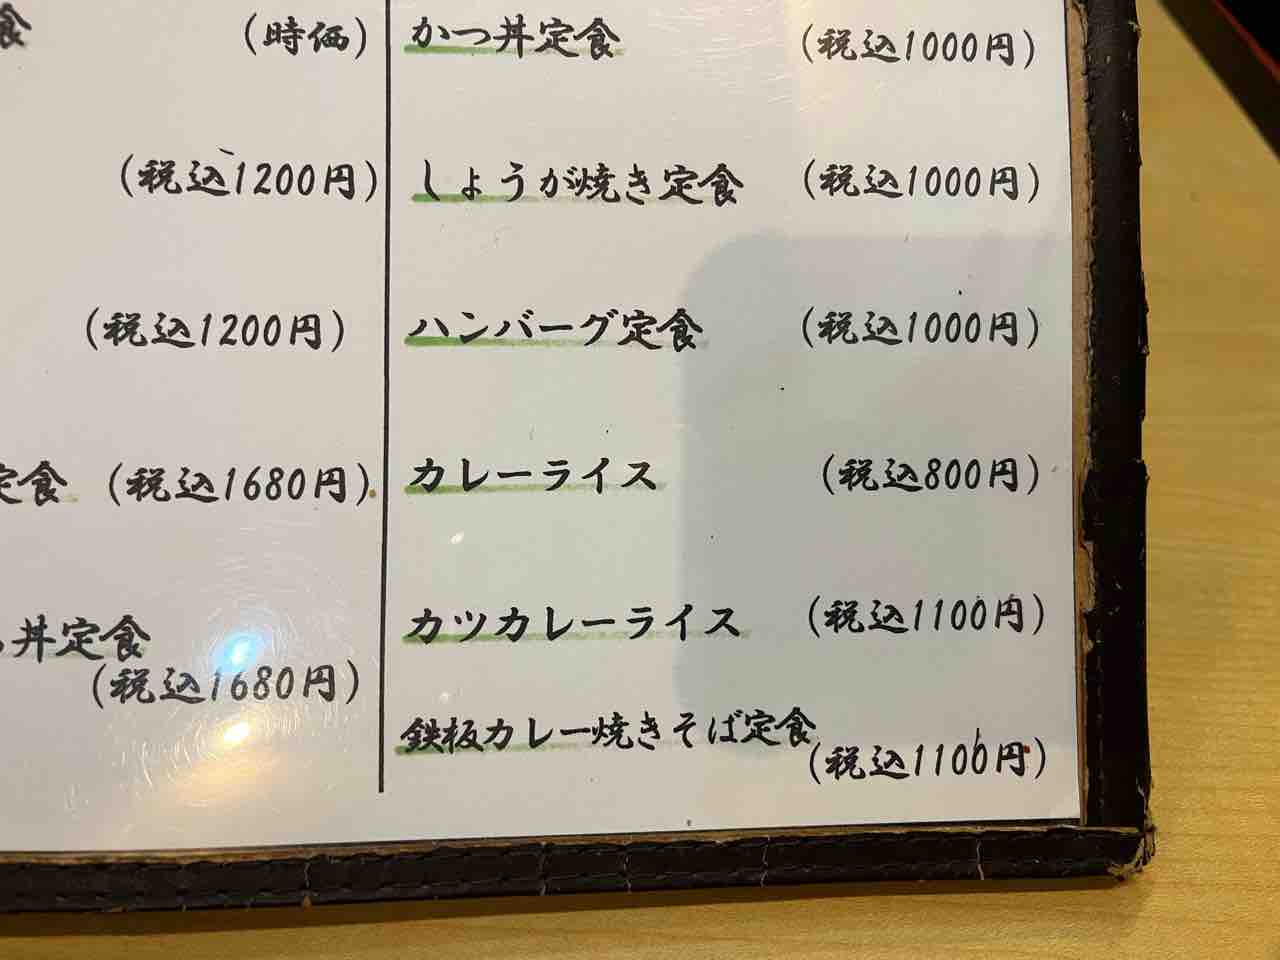 食
(時価)
(税込1200円)
(税込1200円)
定食 (税込1680円)
丼定食
(税込1680円)
かつ丼定食 (税込1000円)
しょうが焼き定食 (税込1000円)
ハンバーグ定食 (税込1000円)
カレーライス (税込800円)
カツカレーライス (税込1100円)
鉄板カレー焼きそば定食
(税込1100円)